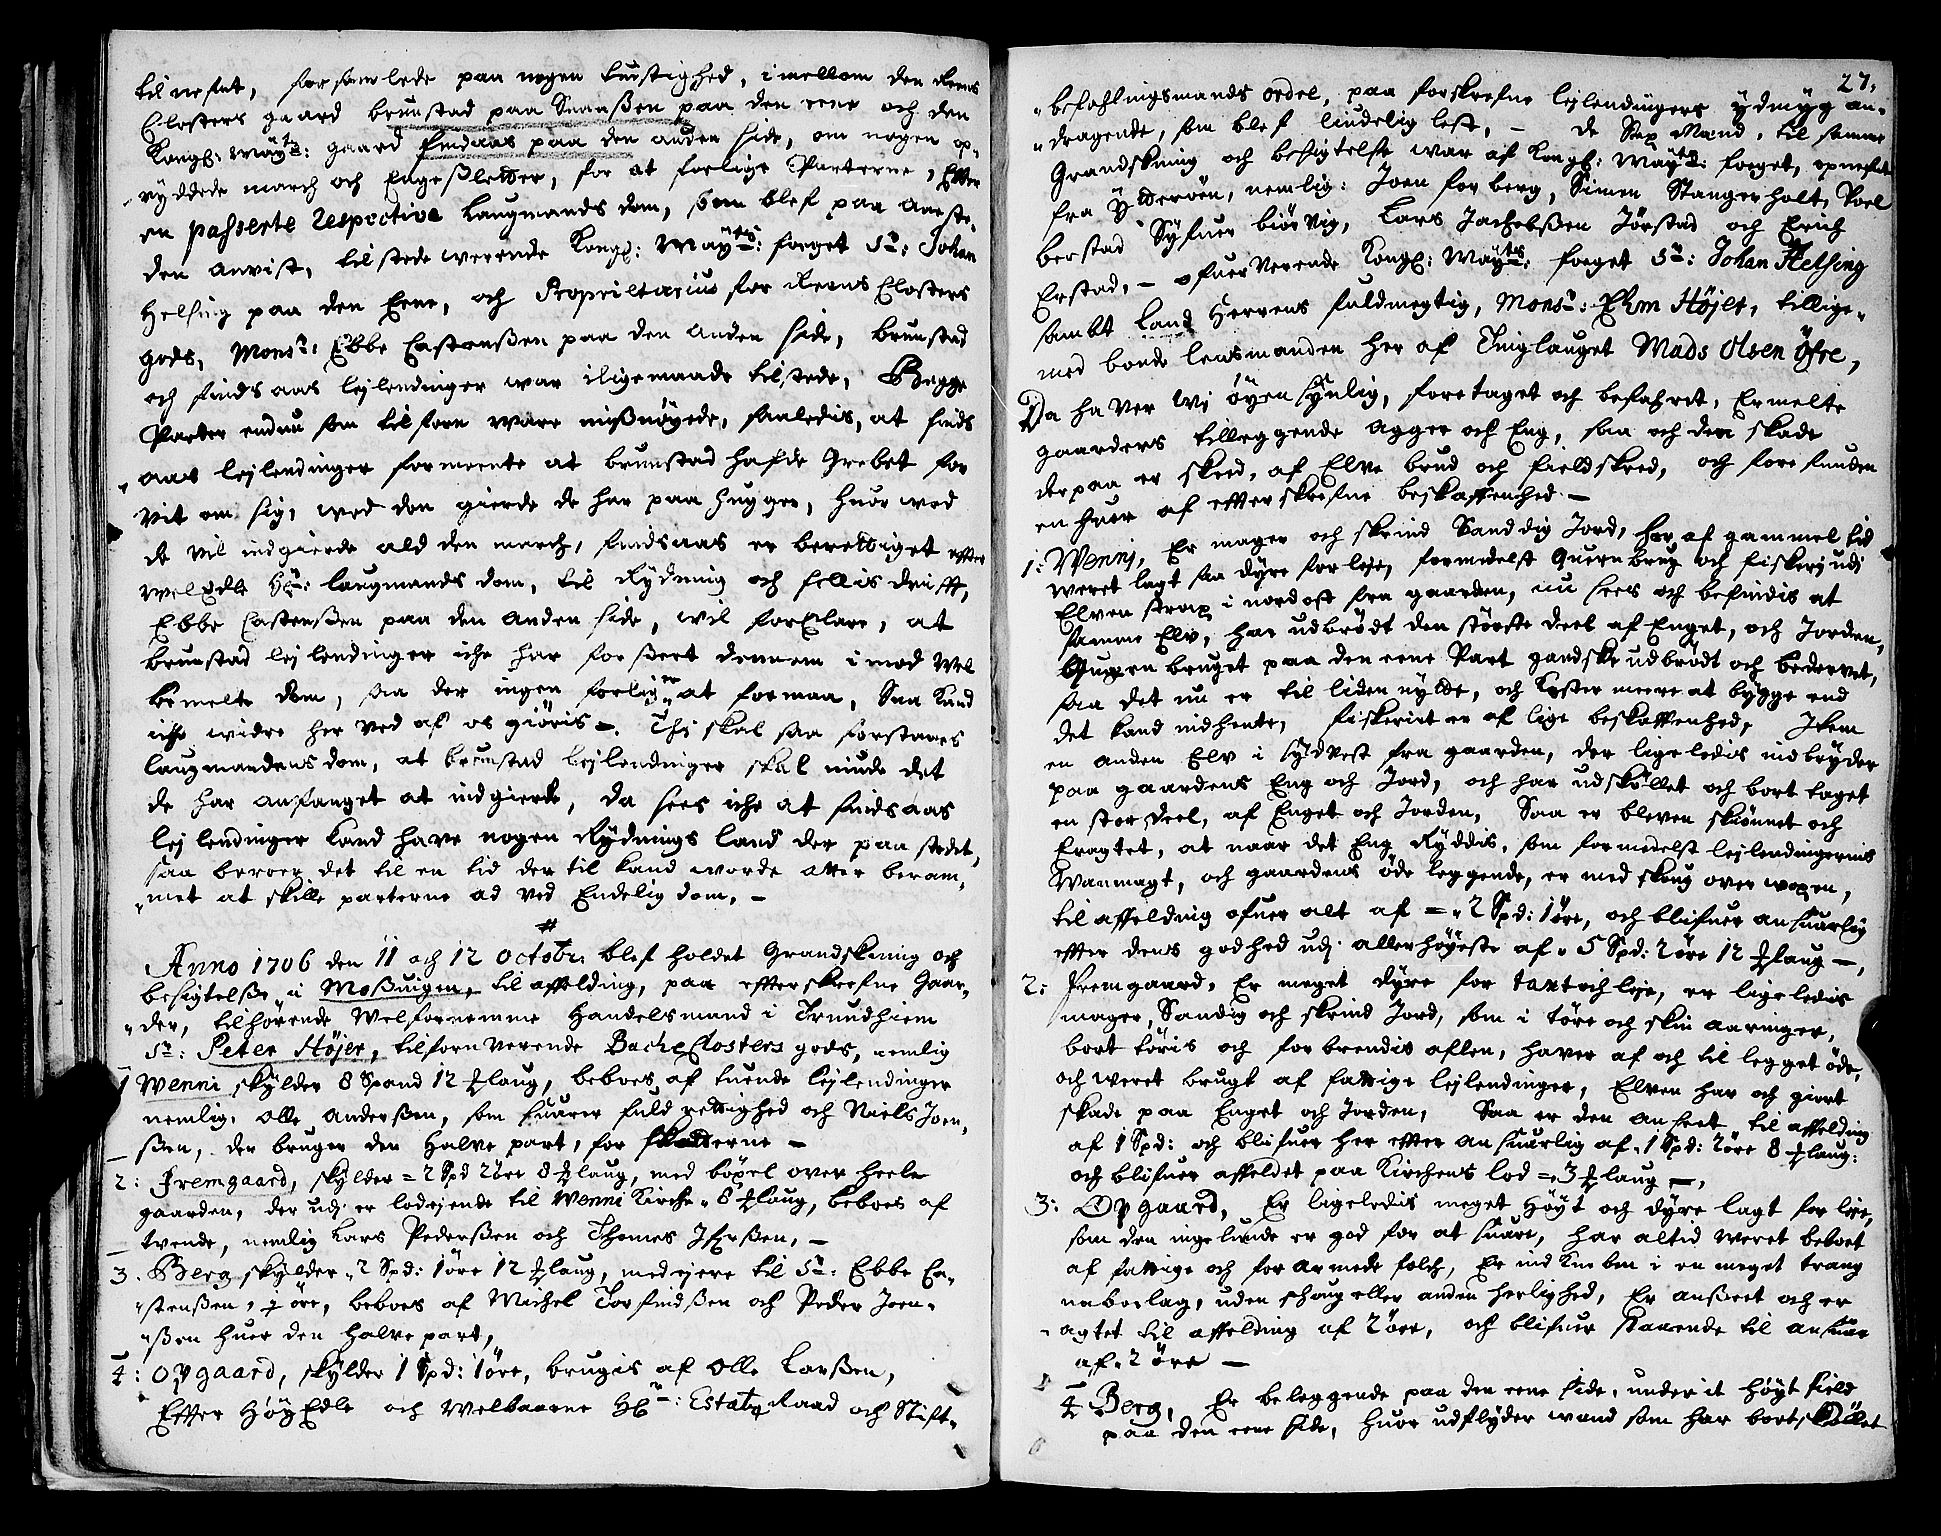 til nefnt, forsamlede paa nogen tuistighed, imellom den Reens
Closters gaard brunstad paa Snaaßen paa den eene och den
Kongl: Maÿts: gaard finsaas paa den anden side, om nogen op-
rÿddede march och Engeßletter, for at forlige Parterne, Effter
en passerte respective Laugmands dom, som blef paa aaste-
den anvist, tilstede werende Kongl: Maÿts: foeget Sr: Johan
Helsing paa den Eene, och Proprietarius for Reens Closters
gods, Monsr: Ebbe Castenßen paa den anden side, brunstad
och finds aas lejlendinger war iligemaade tilstede, Begge
Parter endnu som tilforn ware mißnöyede, saaledis, at finds
aas lejlendinger formeente at brunstad hafde Grebet for
vit om sig, wed den gierde de har paa hugget, huor wed
de vil indgierde ald den march, findsaas er berettiget effter
welEdle Hr: laugmands dom, til Rÿdning och fellis drifft,
Ebbe Castenßen paa den anden side, wil forklare, at
brunstad lejlendinger iche har forßeet dennem imod wel
bemelte dom, saa der ingen forligen at formaa, Saa kand
iche widre her ved af os giöris -. Thi skal saa forstaaes
laugmandens dom, at brunstad lejlendinger skal niude det
de har anfanget at indgierde, da sees iche at findsaas
lejlendinger kand have nogen Rÿdnings land der paa stedet,
saa beroer det til en tid der til kand worde atter beram-
met at skille parterne ad ved Endelig dom, -
#
Anno 1706 den 11 och 12 octobr: blef holdet Grandskening och
besigtelße i Moßuigen, til affelding, paa effterskrefne Gaar-
der, tilhörende Welfornemme Handelsmand i Trundhiem
Sr: Peter Höjer, tilforn verende Bache Closters gods, nemlig
1 Wenni skÿlder 8 Spand 12 ℔laug, beboes af tuende lejlendinger
nemlig, olle anderßen, som suarer fuld rettighed och Niels Joen-
ßen, der bruger den halve part, for skatterne -
2: Fremgaard, skÿlder = 2 Spd 2öre 8 ℔laug, med böxel over heele
gaarden, der udj er lodejende til Wenni Kirche 8 ℔laug, beboes af
tvende, nemlig Lars Pederßen och Thomes, -
3. Berg skÿlder 2 Spd: 1öre 12 ℔laug, medejere til Sr: Ebbe Ca-
stenßen, ½ öre, beboes af Michel Torfindßen och Peder Joen-
ßen huer den halve part,
4: Opgaard, skÿlder 1 Spd: 1öre, brugis af olle Larßen,
Effter HöyEdle och Welbaarne Hr: Estatz Raad och Stifft-
27.
befahlingsmands ordel, paa forskrefne lejlendingers ÿdmÿg an-
dragende, som blef liudelig lest, - de Sex Mænd, til samme
Grandskning och besigtelse war af Kongl: Maÿts: foeget, opnefnt
fra ÿtterøen, nemlig: Joen forberg, Simen Stangerholt, Poel
berstad Sÿfuer biörvig, Lars Jachobßen Jörstad och Erich
Erstad, - ofuerverende Kongl: Maÿts: foeget Sr: Johan Helsing
sambt Land Herrens fuldmegtig, Monsr: Ehm Höjer, tillige-
med bonde lensmanden her af Tinglauget Mads Olsen Öfre,
Da haver wj öyensÿnlig, foretaget och befahret, Ermelte
gaarders tilleggende agger och Eng, saa och den skade
derpaa er skeed, af Elve brud och fieldskred, och forefunden
en huer af effterskrefne beskaffenhed -
1: Wenni, Er mager och skrind Sanddig Jord, har af gammel tid
weret lagt saa dÿre for leje, formedelst Quernbrug och fiskerj udi
Elven strax i nordost fra gaarden, nu sees och befindis at
samme Elv, har udbrödt den störste deel af Enget, och Jorden,
Quern bruget paa den eene Part gandske udbrödt och bedervet,
saa det nu er til liden nÿtte, och koster meere at bÿgge end
det kand indhente, fiskeriet er af lige beskaffenhed, Item
en anden Elv i sÿdvest fra gaarden, der ligeledis indbrÿder
paa gaardens Eng och Jord, och har udskÿllet och bort taget
en stor deel, af Enget och Jorden, Saa er bleven skiönnet och
Eragtet, at naar det Eng Rÿddis, som formedelst lejlendingernis
Wanmagt, och gaardens öde leggende, er med skoug over woxen,
til affelding ofuer alt af = 2 Spd: 1öre, och blifuer ansuarlig
effter dens godhed udj allerhöyeste af 5 Spd: 2öre 12 ℔laug -,
2: Fremgaard, Er meget dÿre for taxt och leje, er ligeledis
mager, Sandig och skrind Jord, som i töre och skin aaringer,
bort töris och forbrendis aflen, haver af och til legget öde,
och weret brugt af fattige lejlendinger, Elven har och giort
skade paa Enget och Jorden, Saa er den anseet til affelding
af 1 Spd: och blifuer her effter ansuarlig af 1 Spd: 2öre 8 ℔laug:
och blifuer affeldet paa Kirchens lod = 3 ℔laug -,
3: Opgaard, Er ligeledis meget Höyt och dÿre lagt for leje,
som den ingelunde er god for at suare, har altid weret beboet
af fattige och forarmede folch, Er indKneben i en meget trang
nabolag, uden skoug eller anden herlighed, Er anßeet och er
agtet til affelding af 2öre, och blifuer staaende til ansuar
af 2 öre -
4 Berg, Er beleggende paa den eene side, under it höyt field
paa den eene side, huor udflÿder wand som har bortskÿllet